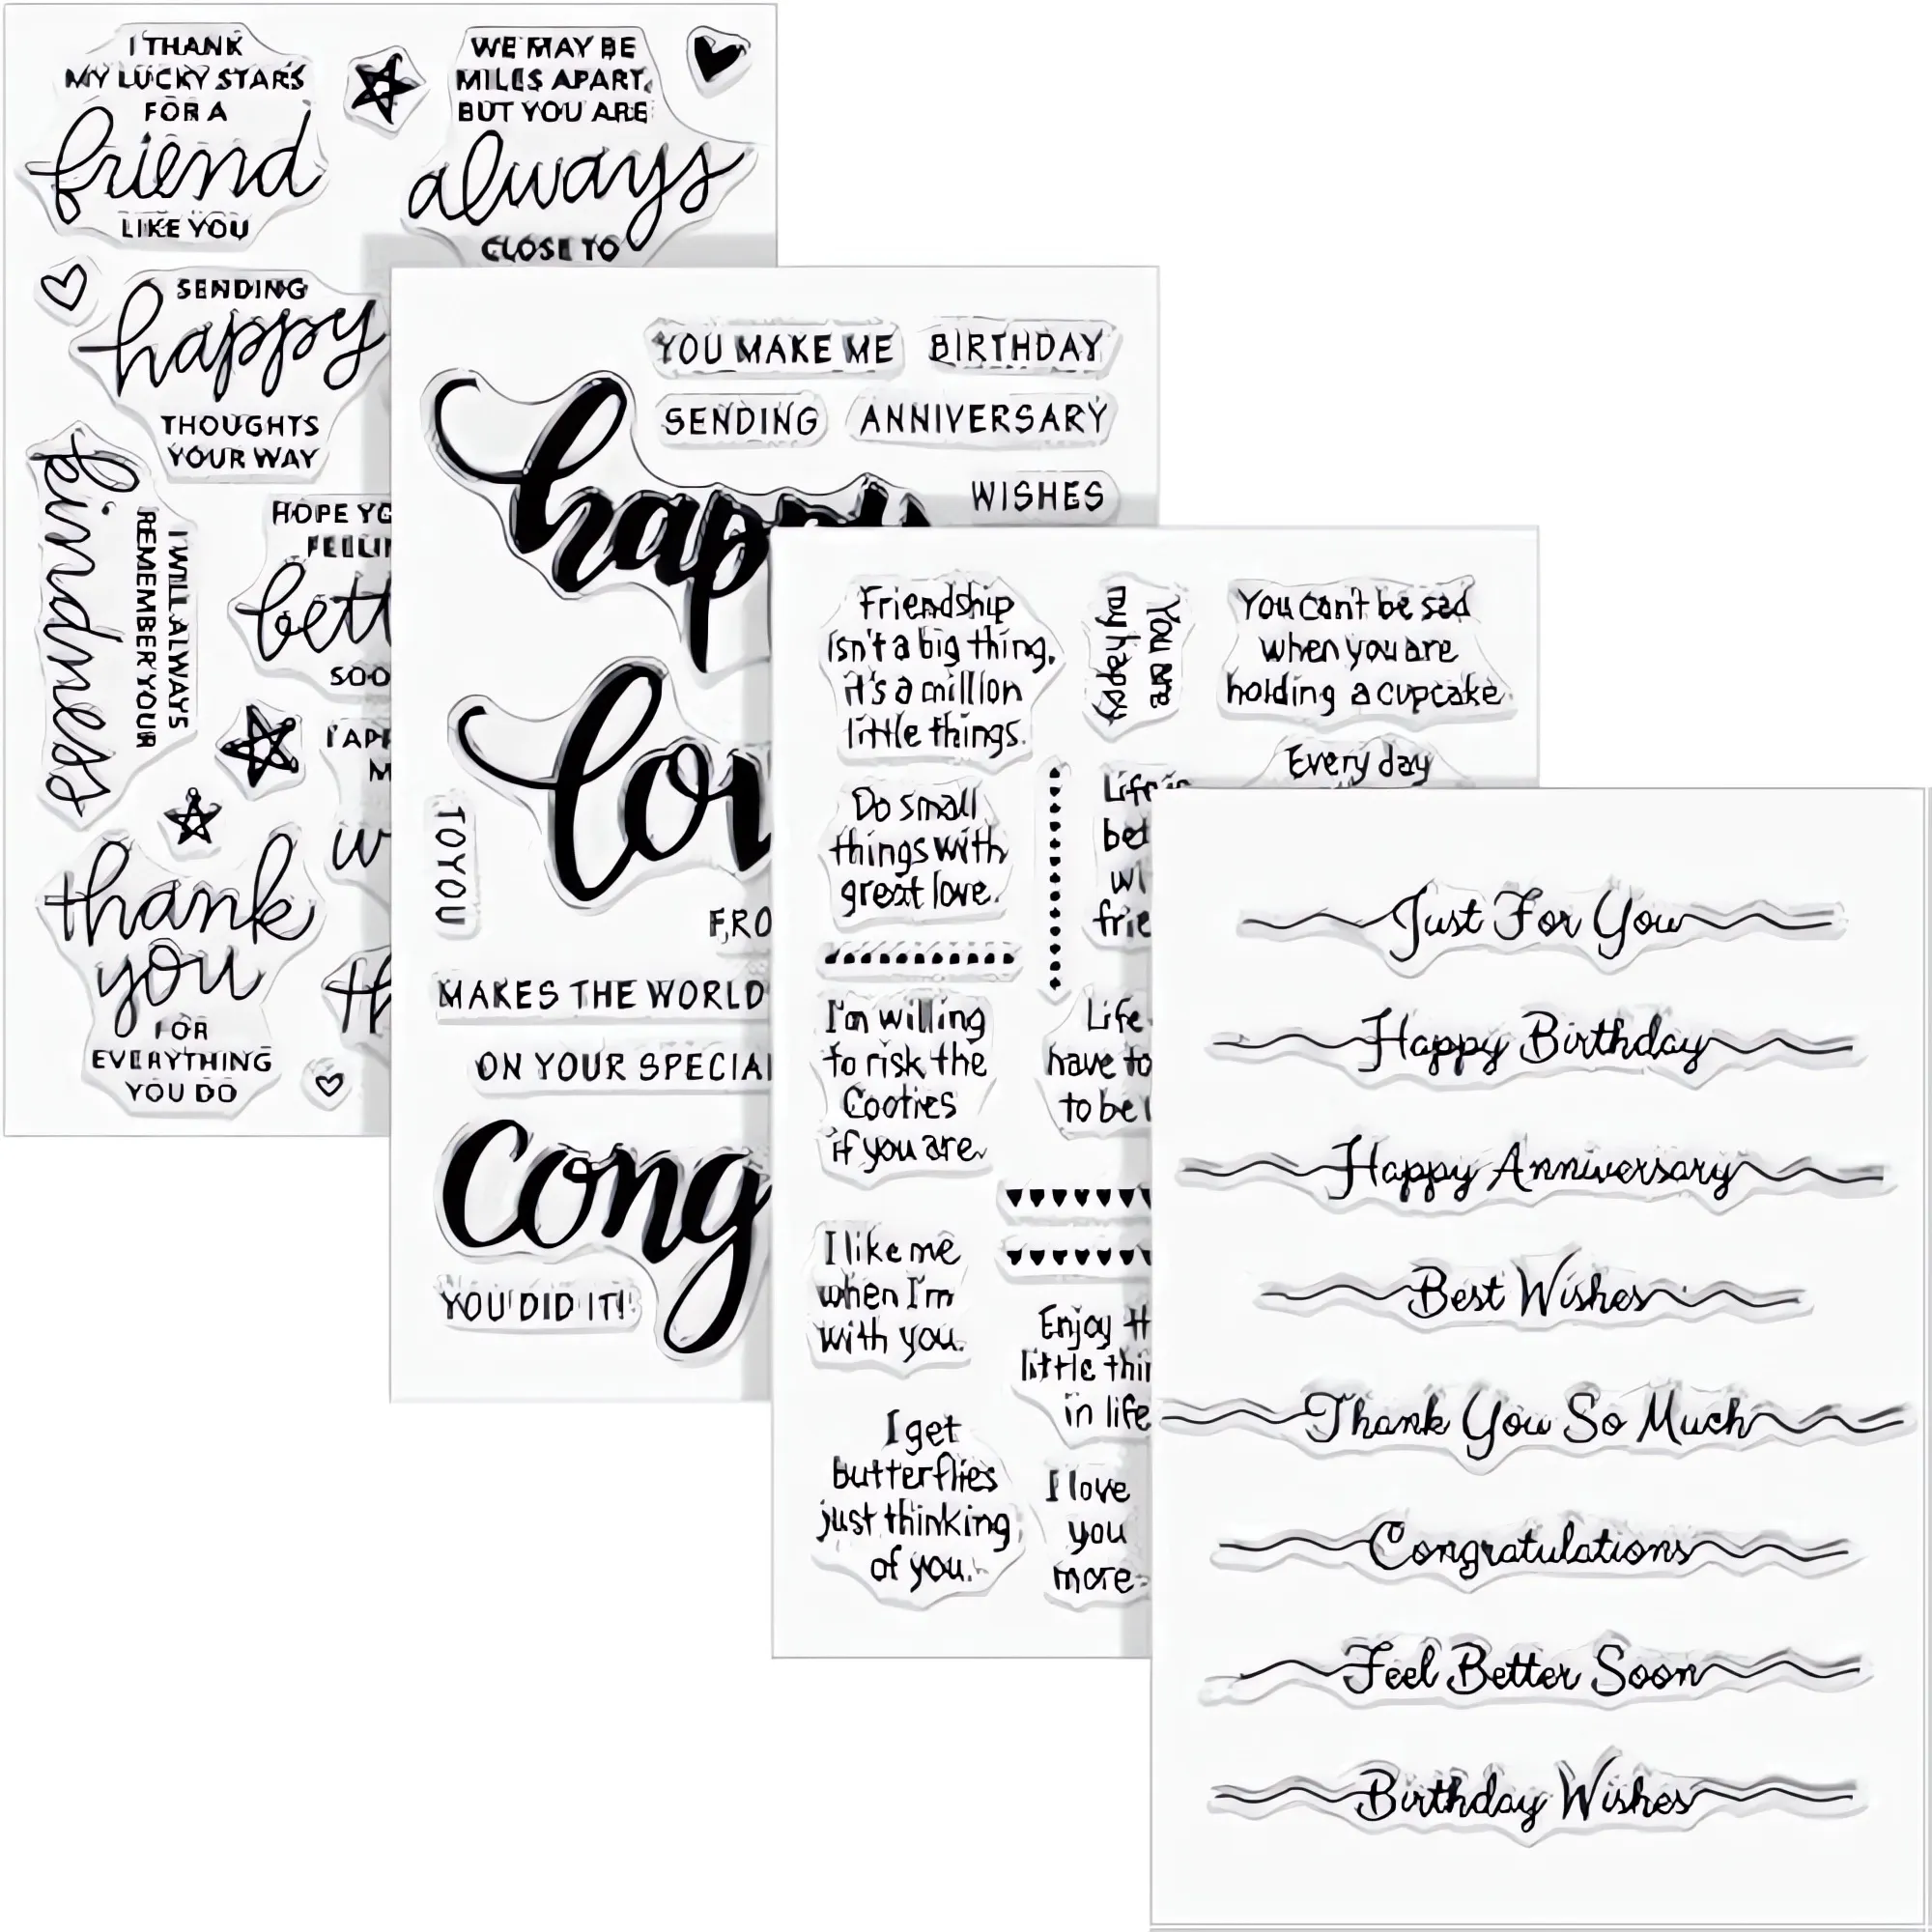 I THANK
MY LUCKY STARS
FOR A
friend
LIKE YOU
WE MAY BE
MILES APART,
BUT YOU ARE
always
CLOSE TO
SENDING
happy
THOUGHTS
YOUR WAY
I WILL ALWAYS
REMEMBER YOUR
kindness
HOPE
SOO
thank
you
FOR
EVERYTHING
YOU DO
YOU MAKE ME
BIRTHDAY
SENDING
ANNIVERSARY
WISHES
happy
TO YOU
MAKES THE WORLD
ON YOUR SPECIAL
Cong
YOU DID IT!
Friendship
isn't a big thing,
it's a million
little things.
You are
my happy
You can't be sad
when you are
holding a cupcake.
Every day
Do small
things with
great love.
Life is
I'm willing
to risk the
Cooties
if you are.
Life
have to
to be
I like me
when I'm
with you.
Enjoy
little
in life
I get
butterflies
just thinking
of you.
I love
you
more
Just For You
Happy Birthday
Happy Anniversary
Best Wishes
Thank You So Much
Congratulations
Feel Better Soon
Birthday Wishes